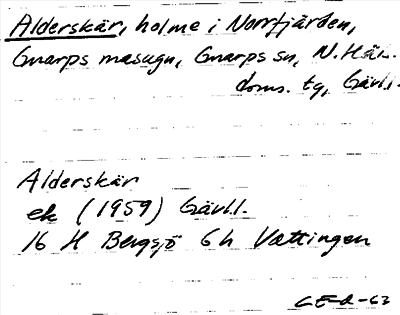 Alderskär, holme i Norrfjärden,
Gnarps masugn, Gnarps sn, N. Häls.
doms. tg, Gävl.
Alderskär
ek (1959) Gävl.l.
16 H Bergsjö 6h Vattingen